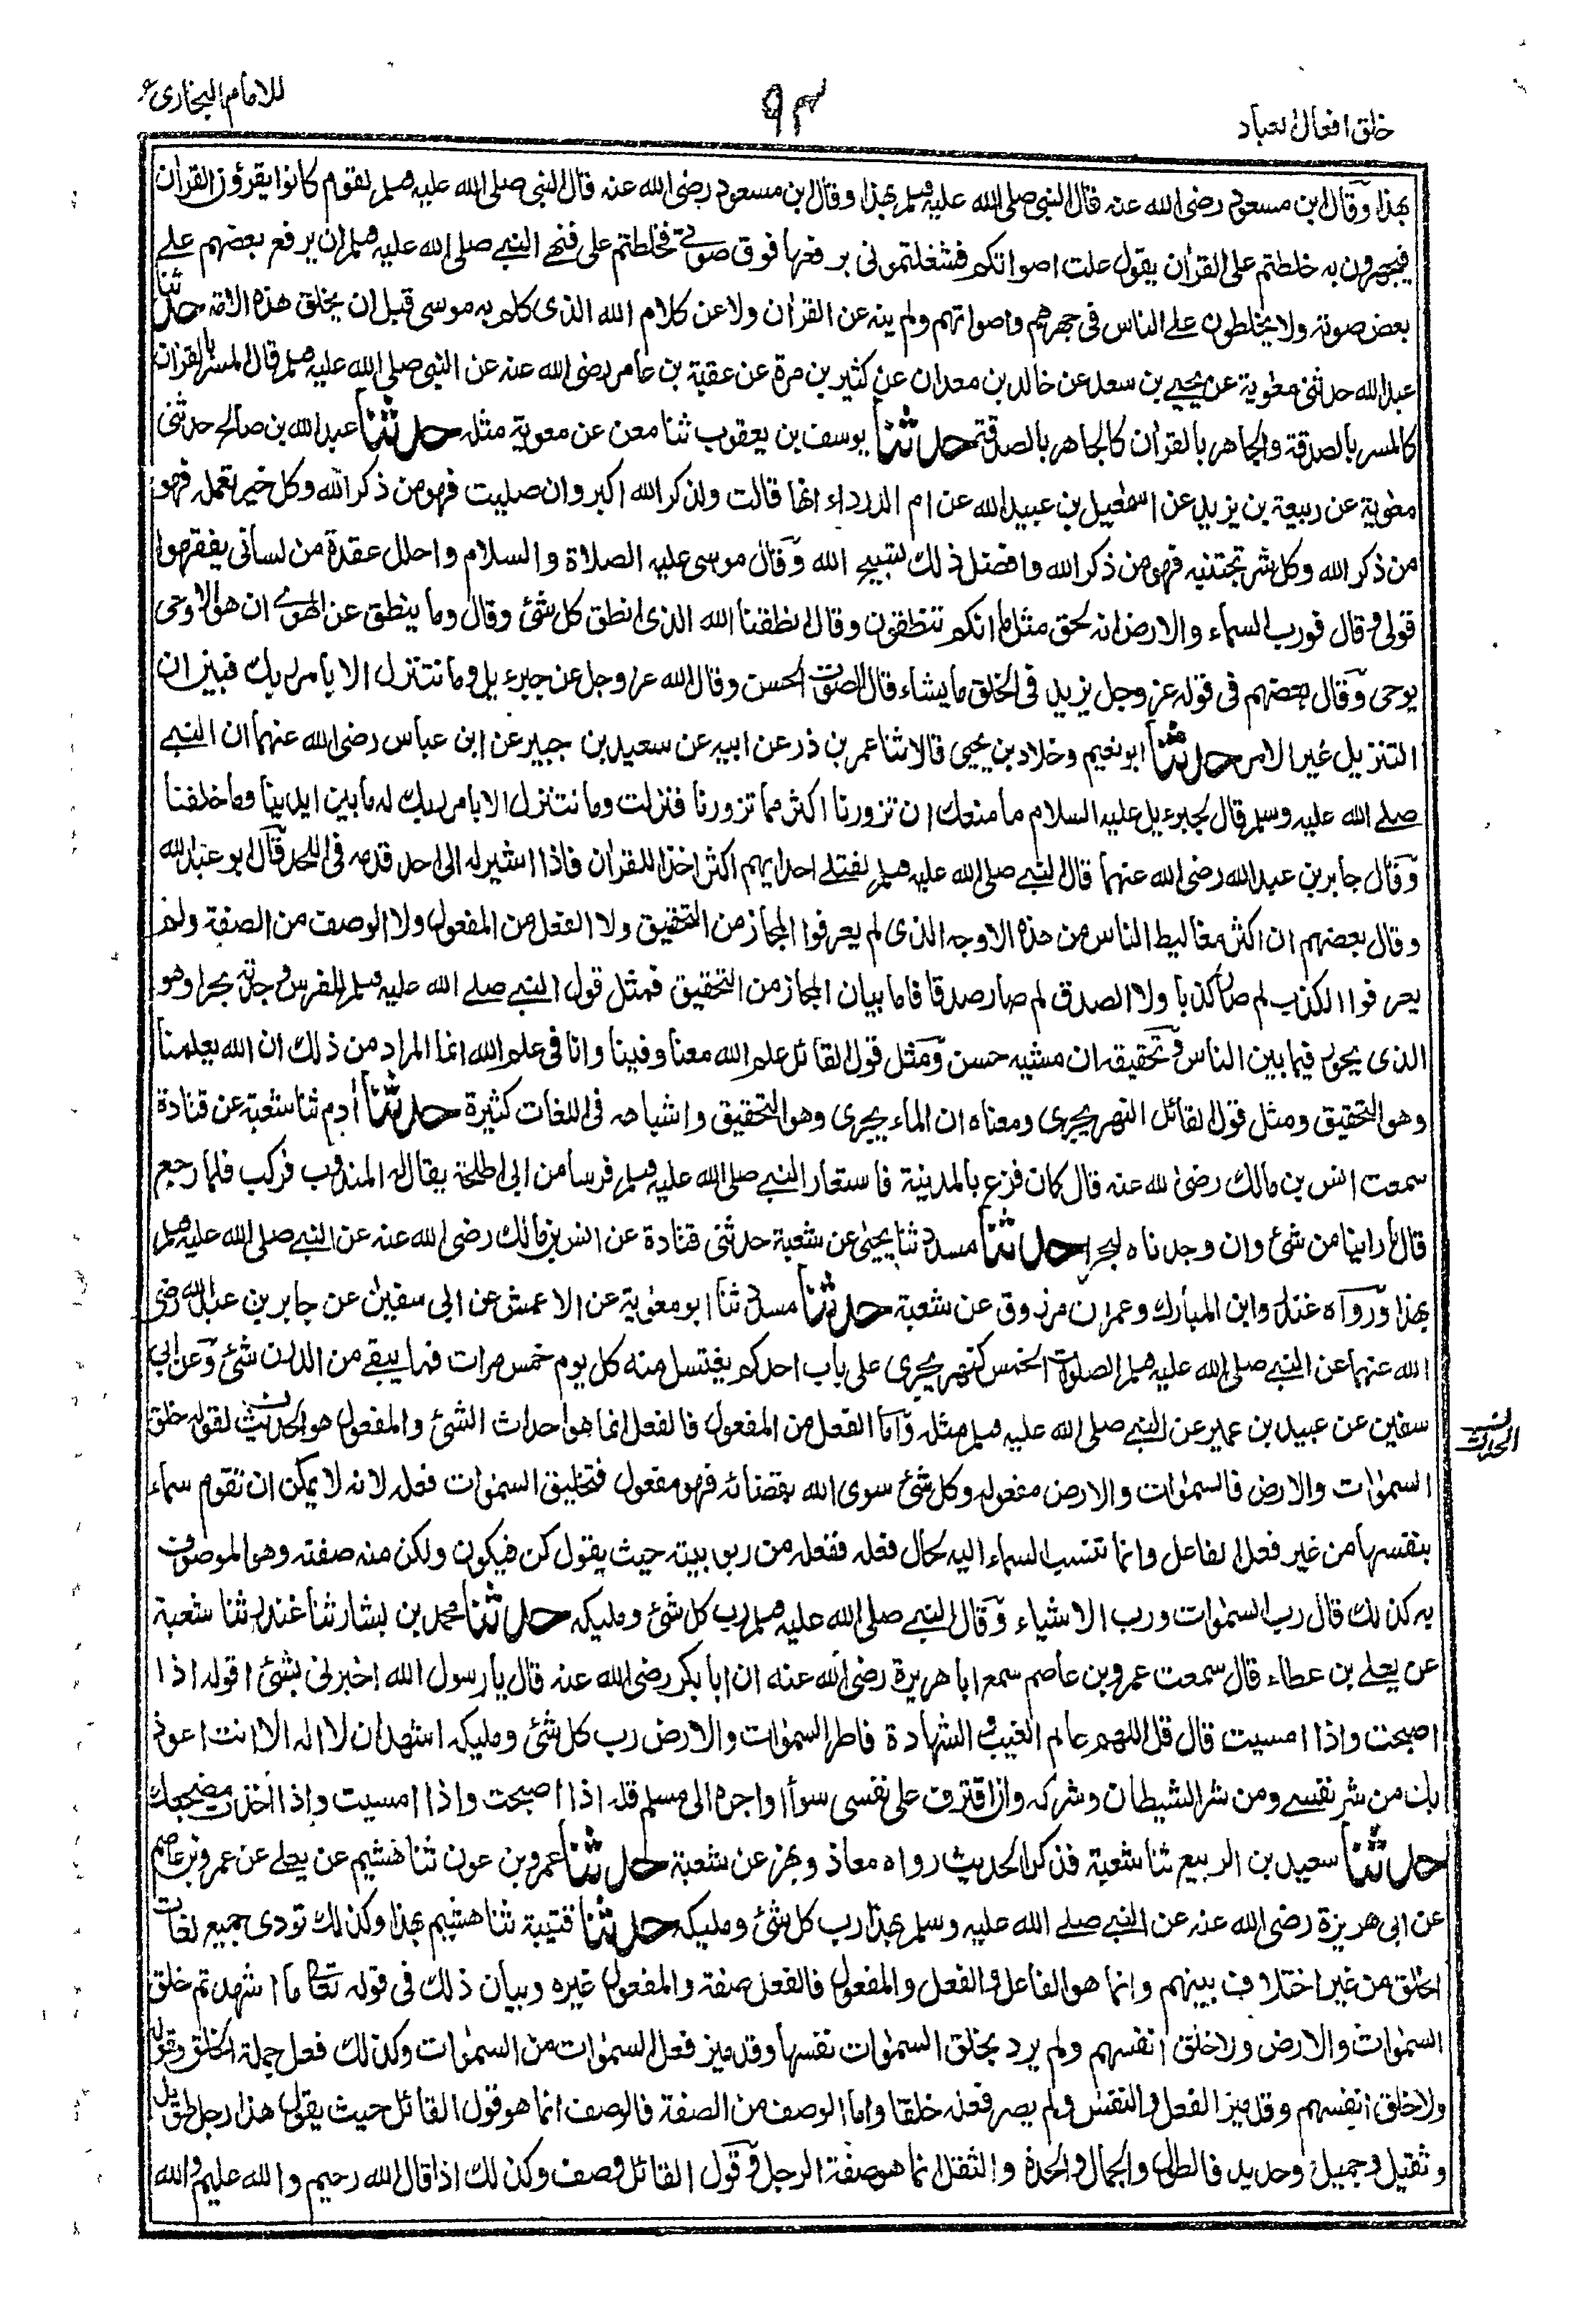 خلق افعال العباد
٩٣
للامام البخاری
بهذا وقال ابن مسعود رضی الله عنه قال النبی صلی الله علیه وسلم بهذا وقال ابن مسعود رضی الله عنه قال النبی صلی الله علیه وسلم لقوم کانوا یقرؤن القرآن
فیجهرون به خلطتم علی القرآن یقول علت اصواتکم فشغلتمونی برفعها فوق صوتی فخلطتم علی فنهی النبی صلی الله علیه وسلم ان یرفع بعضهم علی
بعض صوته ولا یخلطون علی الناس فی جهرهم واصواتهم ولم ینه عن القرآن ولا عن کلام الله الذی کلم به موسی قبل ان یخلق هذه الامة حدثنا
عبدالله حدثنی معویة عن یحیی بن سعد عن خالد بن معدان عن کثیر بن مرة عن عقبة بن عامر رضی الله عنه عن النبی صلی الله علیه وسلم قال المسر بالقرآن
کالمسر بالصدقة والجاهر بالقرآن کالجاهر بالصدقة حدثنا یوسف بن یعقوب ثنا معن عن معویة مثله حدثنا عبدالله بن صالح حدثنی
معویة عن ربیعة بن یزید عن اسمعیل بن عبیدالله عن ام الدرداء انها قالت ولذکر الله اکبر وان صلیت فهو من ذکر الله وکل خیر تعمله فهو
من ذکر الله وکل شر تجتنبه فهو من ذکر الله وافضل ذلک تسبیح الله وقال موسی علیه الصلاة والسلام واحلل عقدة من لسانی یفقهوا
قولی وقال فورب السماء والارض انه لحق مثل ما انکم تنطقون وقال انطقنا الله الذی انطق کل شئ وقال وما ینطق عن الهوی ان هو الا وحی
یوحی وقال بعضهم فی قوله عز وجل یزید فی الخلق ما یشاء قال الصوت الحسن وقال الله عز وجل عن جبرءیل وما نتنزل الا بامر ربک فبین ان
التنزیل غیر الامر حدثنا ابو نعیم وخلاد بن یحیی قالا ثنا عمر بن ذر عن ابیه عن سعید بن جبیر عن ابن عباس رضی الله عنهما ان النبی
صلی الله علیه وسلم قال لجبرءیل علیه السلام ما منعک ان تزورنا اکثر مما تزورنا فنزلت وما نتنزل الا بامر ربک له ما بین ایدینا وما خلفنا
وقال جابر بن عبدالله رضی الله عنهما قال النبی صلی الله علیه وسلم لقتلی احد ایهم اکثر اخذا للقرآن فاذا اشیر له الی احد قدمه فی اللحد قال ابو عبدالله
وقال بعضهم ان اکثر مغالیط الناس من هذه الاوجه الذی لم یعرفوا المجاز من التحقیق ولا الفعل من المفعول ولا الوصف من الصفة ولم
یعرفوا الکذب لم صار کذبا ولا الصدق لم صار صدقا فاما بیان المجاز من التحقیق فمثل قول النبی صلی الله علیه وسلم للفرس وجدته بحرا وهو
الذی یجوز فیما بین الناس وتحقیقه ان مشیه حسن ومثل قول القائل علم الله معنا وفینا وانا فی علم الله انما المراد من ذلک ان الله یعلمنا
وهو التحقیق ومثل قول القائل النهر یجری ومعناه ان الماء یجری وهو التحقیق واشباهه فی اللغات کثیرة حدثنا آدم ثنا شعبة عن قتادة
سمعت انس بن مالک رضی الله عنه قال کان فزع بالمدینة فاستعار النبی صلی الله علیه وسلم فرسا من ابی طلحة یقال له المندوب فرکب فلما رجع
قال ما راینا من شئ وان وجدناه لبحرا حدثنا مسدد ثنا یحیی عن شعبة حدثنی قتادة عن انس بن مالک رضی الله عنه عن النبی صلی الله علیه وسلم
بهذا ورواه غندر وابن المبارک وعمر ان مرزوق عن شعبة حدثنا مسدد ثنا ابو معویة عن الاعمش عن ابی سفین عن جابر بن عبدالله رضی
الله عنهما عن النبی صلی الله علیه وسلم الصلوات الخمس کنهر یجری علی باب احدکم یغتسل منه کل یوم خمس مرات فما یبقی من الدرن شئ وعن ابی
سفین عن عبید بن عمیر عن النبی صلی الله علیه وسلم مثله واما الفعل من المفعول فالفعل انما هو احداث الشئ والمفعول هو الحدیث لقوله خلق
السموات والارض فالسموات والارض مفعوله وکل شئ سوی الله بقضائه فهو مفعول فتخلیق السموات فعله لانه لا یمکن ان تقوم سماء
بنفسها من غیر فعل الفاعل وانما تنسب السماء الیه لحال فعله ففعله من ربوبیته حیث یقول کن فیکون ولکن منه صفته وهو الموصوف
به کذلک قال رب السموات ورب الاشیاء وقال النبی صلی الله علیه وسلم رب کل شئ وملیکه حدثنا محمد بن بشار ثنا غندر ثنا شعبة
عن یعلی بن عطاء قال سمعت عمرو بن عاصم سمع ابا هریرة رضی الله عنه ان ابا بکر رضی الله عنه قال یا رسول الله اخبرنی بشئ اقوله اذا
اصبحت واذا امسیت قال قل اللهم عالم الغیب والشهادة فاطر السموات والارض رب کل شئ وملیکه اشهد ان لا اله الا انت اعوذ
بک من شر نفسی ومن شر الشیطان وشرکه وان اقترف علی نفسی سوأ او اجره الی مسلم قله اذا اصبحت واذا امسیت واذا اخذت مضجعک
حدثنا سعید بن الربیع ثنا شعبة فذکر الحدیث رواه معاذ وبهز عن شعبة حدثنا عمرو بن عون ثنا هشیم عن یعلی عن عمرو بن عاصم
عن ابی هریرة رضی الله عنه عن النبی صلی الله علیه وسلم بهذا رب کل شئ وملیکه حدثنا قتیبة ثنا هشیم بهذا وکذلک تودی جمیع لغات
الخلق من غیر اختلاف بینهم وانما هو الفاعل والفعل والمفعول فالفعل صفة والمفعول غیره وبیان ذلک فی قوله تعالی ما اشهدتهم خلق
السموات والارض ولا خلق انفسهم ولم یرد بخلق السموات نفسها وقد میز فعل السموات من السموات وکذلک فعل جملة الخلق وقوله
ولا خلق انفسهم وقد میز الفعل والنفس ولم یصر فعله خلقا واما الوصف من الصفة فالوصف انما هو قول القائل حیث یقول هذا رجل طویل
وثقیل وجمیل وحدید فالطول والجمال والحدة والثقل انما هو صفة الرجل وقول القائل وصف وکذلک اذا قال الله رحیم والله علیم والله